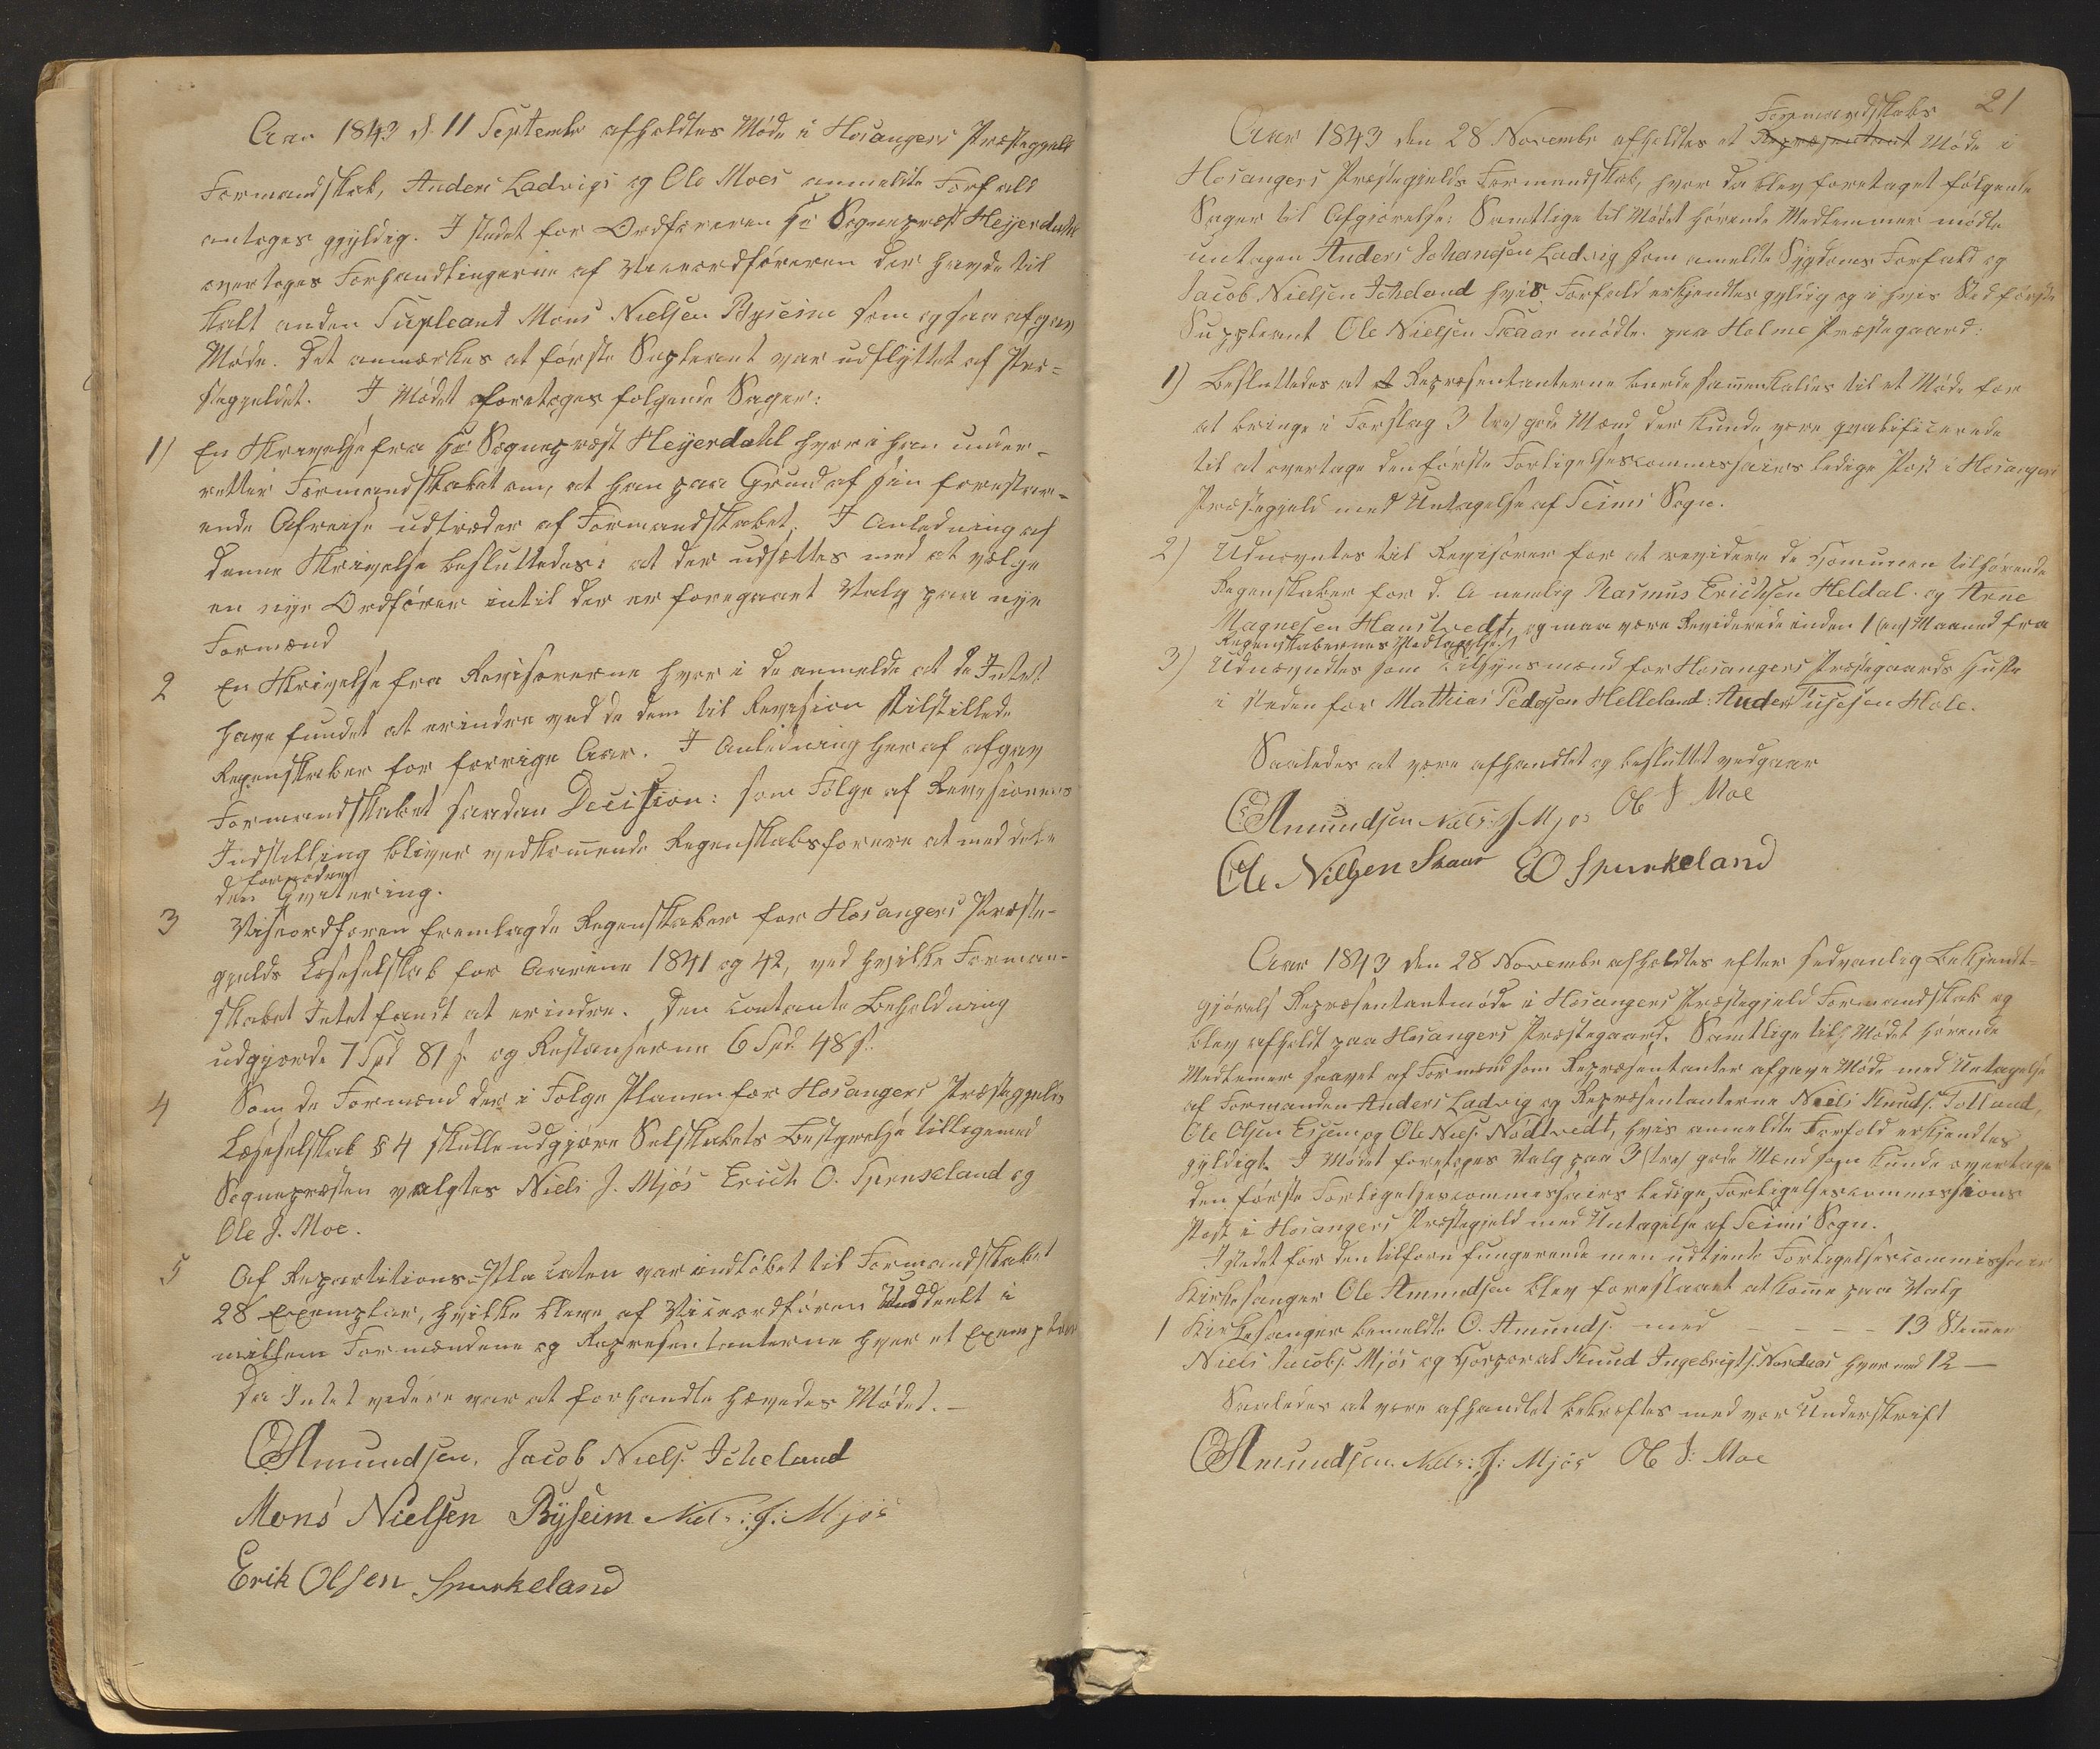 Aar 1843 d. 11 Septembr afholdtes Møde i Hosangers Præstegjelds
Formandskab, Anders Ladvigs og Ole Moes anmeldte Forfald
antoges gyldig. I stedet for Ordføreren Hr Sognepræst Heyerdahl
overtoges Forhandlingerne af Viceordføreren der havde til
kalt anden Supleant Mons Nielsen Byseim som ogsaa afgav
Møde. Det anmærkes at første Supleant var udflyttet af Præ-
stegjeldet. I Mødet foretoges følgende Sager:
1) En Skrivelse fra Hr Sognepræst Heyerdahl hvori han under-
retter Formandskabet om, at han paa Grund af sin forestaa-
ende Afreise udtræder af Formandskabet. I Anledning af
denne Skrivelse besluttedes: at der udsættes med at vælge
en nye Ordfører intil der er foregaaet Valg paa nye
Formænd
2 En Skrivelse fra Revisorerne hvor i de anmelde at de Intet
have fundet at erindre ved de dem til Revision tilstillede
Regenskaber for forrige Aar. I Anledning heraf afgav
Formandskabet saadan Decision: som Følge af Revisionens
Indstilling bliver vedkommende Regenskabsførere at meddele
fornøden
den Qvitering.
3 Viseordføren fremlagde Regenskaber for Hosangers Præste-
gjelds Læseselskab for Aarene 1841 og 42, ved hvilke Forman-
skabet Intet fandt at erindre. Den contante Beholdning
udgjorde 7 Spd 81 s. og Restanserne 6 Spd. 48 s.
4 Som de Formænd der i Følge Planen for Hosangers Præstegjelds
Læseselskab § 4 skulle udgjøre Selskabets Bestyrelse tilligemed
Sognepræsten valgtes Niels J. Mjøs Erich O. Spurkeland og
Ole J. Moe.
5 Af Repartitions-Placaten var indløbet til Formandskabet
28 Exemplar, hvilke bleve af Viceordføren Uddeelt i
mellem Formændene og Representanterne hver et Exemplar
Da Intet videre var at forhandle hævedes Mødet. –
OAmundsen, Jacob Niels. Icheland
Mons Nielsen Byseim Niels: J: Mjøs
Erik Olsen Spurkeland
21
Formandskabs
Aar 1843 den 28 Novembr afholdtes et Repræsentant Møde i
Hosangers Præstegjelds Formandskab, hvor da blev foretaget følgende
Sager til Afgjørelse: Samtlige til Mødet hørende Medlemmer mødte
untagen Anders Johannesen Ladvig som anmeldte Sygdoms Forfald og
Jacob Nielsen Icheland hvis Forfald erkjendtes gyldig og i hvis Sted første
Suppleant Ole Nielsen Skaar mødte. paa Holme Præstegaard:
1) Besluttedes at Repræsentanterne burde sammenkaldes til et Møde for
at bringe i Forslag 3 (tre) gode Mænd der kunde være qvalificerede
til at overtage den første Forligelsescommissairs ledige Post i Hosangers
Præstegjeld med Untagelse af Seims Sogn.
2) Udnævntes til Revisorer for at revidere de Communen tilhørende
Regenskaber for d. A nemlig Rasmus Erichsen Heldal. og Arne
Magnesen Haustvedt, og maa være Reviderede inden 1 (en) Maaned fra
Regenskabernes Modtagelse.
3) Udnævndtes som Tilsynsmænd for Hosangers Præstegaards Huse
i steden for Mathias Pedersen Helleland: Anders Hole.
Saaledes at være afhandlet og besluttet vedgaar
OAmundsen Niels: J Mjøs Ole J Moe
Ole Nilsen Skaar EO Spurkeland
Aar 1843 den 28 Novembr afholdtes efter sedvanlig Bekjendt-
gjørels Repræsentantmøde i Hosangers Præstegjeld Formandskab og
blev afholdt paa Hosangers Præstegaard. Samtlige til Mødet hørende
Medlemer saavel af Formænd som Repræsentanter afgave Møde med Untagelse
af Formanden Anders Ladvig og Repræsentanterne Niels Knuds. Totland,
Ole Olsen Essem og Ole Niels. Nødtvedt, hvis anmeldte Forfald erkjendtes
gyldigt. I Mødet foretoges Valg paa 3 (tre) gode Mænd som kunde overtage
den første Forligelsescommissairs ledige Forligelsescommissions
Post i Hosangers Præstegjeld med Untagelse af Seims Sogn.
I stedet for den tilforn fungerende men udtjente Forligelsescommissair
Kirkesanger Ole Amundsen blev foreslaaet at komme paa Valg
1 Kirkesanger bemeldte O. Amunds. med – – – – 13 Stemmer
Niels Jacobs. Mjøs og Corporal Knud Ingebrigts. Nordaas hver med 12 —
Saaledes at være afhandlet bekræftes med vor Underskrift
OAmundsen. Niels: J: Mjøs Ole J: Moe